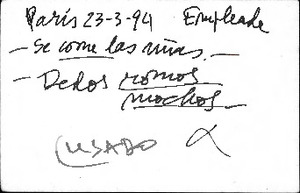 Paris 23-3-94 Empleada
- Se come las uñas. -
- Dedos romos
mochos -
USADO